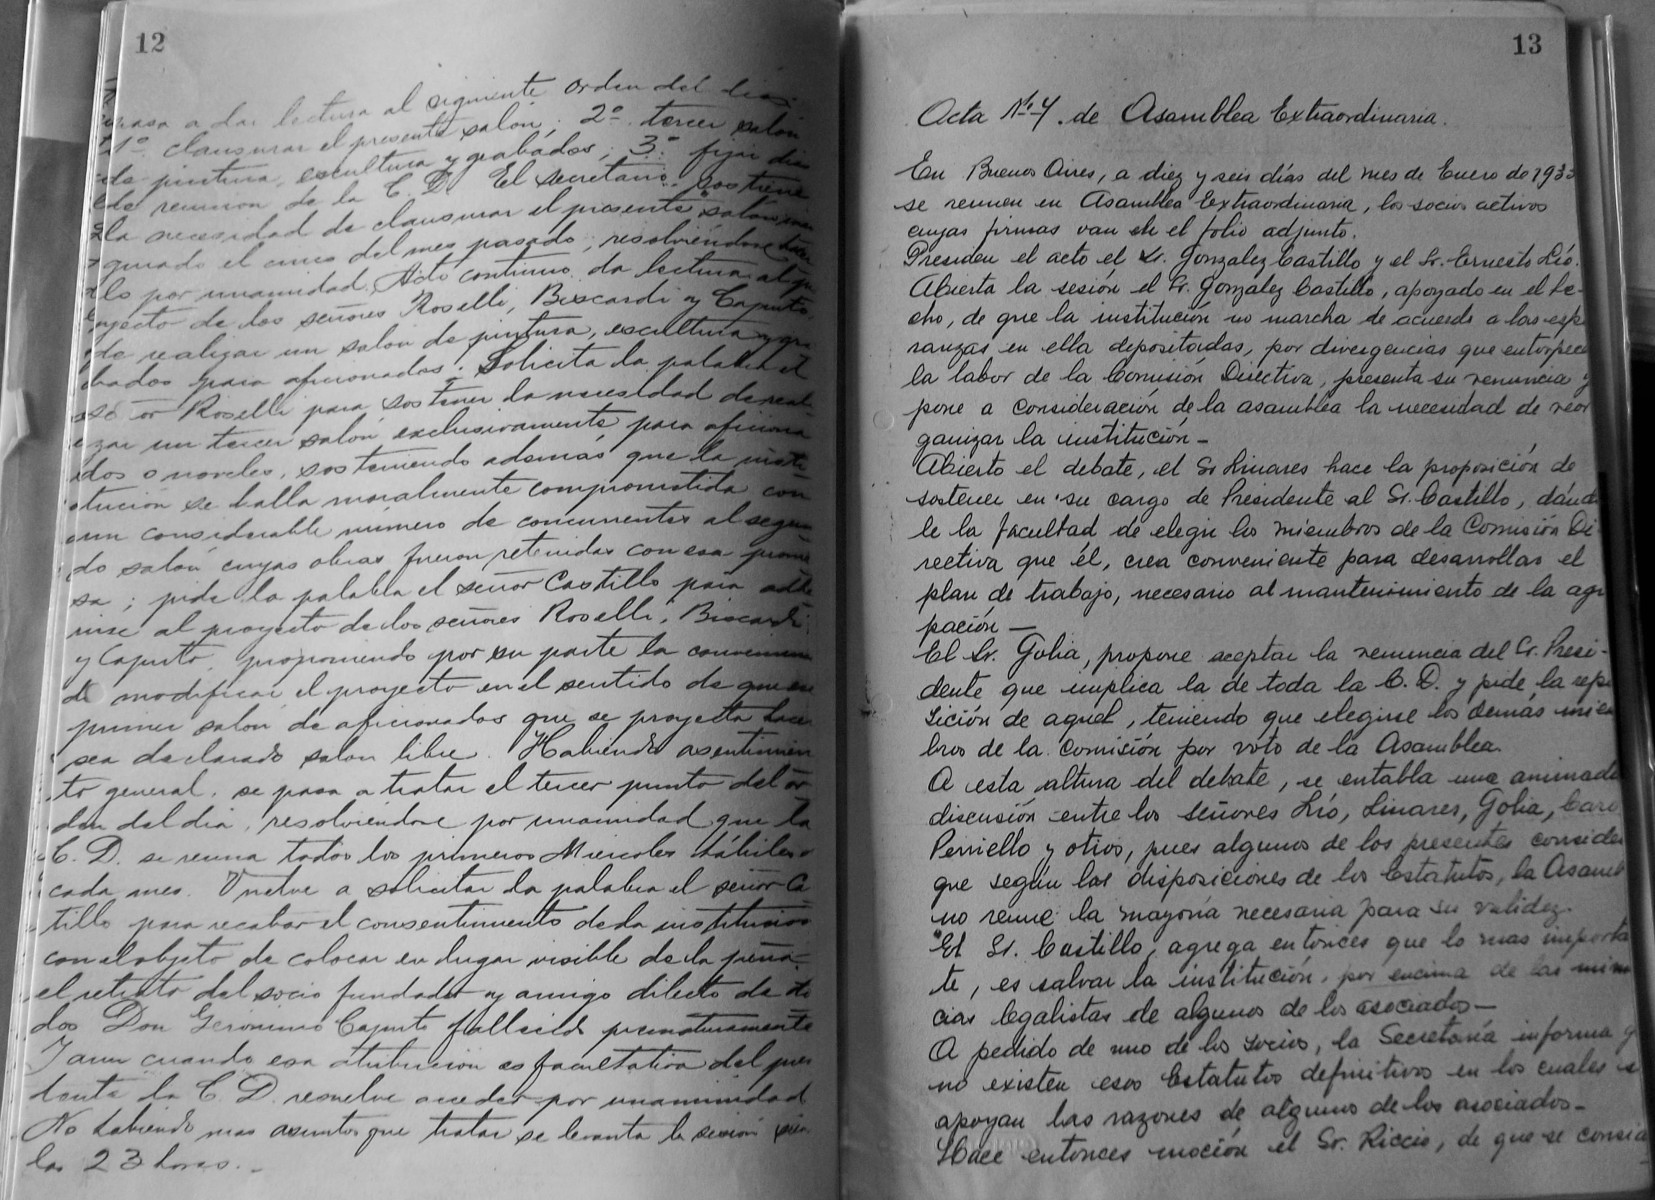 12
pasa a dar lectura al siguiente orden del día:
1º clausurar el presente salón; 2º tercer salón
de pintura, escultura y grabados; 3º fijar dia
de reunion de la C. D. El secretario sostiene
la necesidad de clausurar el presente salón
gurado el once del mes pasado; resolviéndose
lo por unanimidad. Acto continuo da lectura al
yecto de los señores Roselli, Biscardi y Caputo,
de realizar un salón de pintura, escultura y gra
bados para aficionados. Solicita la palabra el
señor Roselli para sostener la necesidad de real
izar un tercer salón exclusivamente para aficiona
dos o noveles, sosteniendo además que la insti
tución se halla moralmente comprometida con
un considerable número de concurrentes al segun
do salón cuyas obras fueron retenidas con esa prome
sa; pide la palabra el señor Castillo para adhe
rirse al proyecto de los señores Roselli, Biscardi
y Caputo, proponiendo por su parte la
de modificar el proyecto en el sentido de que
primer salón de aficionados que se proyecta hacer
sea declarado salon libre. Habiendo asentimien
to general, se pasa a tratar el tercer punto del or
den del dia, resolviéndose por unanimidad que la
C. D. se reuna todos los primeros Miercoles hábiles
cada mes. Vuelve a solicitar la palabra el señor Cas
tillo para recabar el consentimiento de la institucion
con el objeto de colocar en lugar visible de la peña
el retrato del socio fundador y amigo dilecto de to
dos Don Geronimo Caputo fallecido prematuramente
Y aun cuando esa atribucion es facultativa del
la C. D. resuelve acceder por unanimidad
No habiendo mas asuntos que tratar se levanta la sesión
las 23 horas.-
13
Acta Nº 4 . de Asamblea Extraordinaria.
En Buenos Aires, a diez y seis días del mes de Enero de 1933
se reunen en Asamblea Extraordinaria, los socios activos
cuyas firmas van en el folio adjunto.
Presiden el acto el Sr. Gonzalez Castillo y el Sr. Ernesto Lío.
Abierta la sesión el Sr. Gonzalez Castillo, apoyado en el he-
cho, de que la institución no marcha de acuerdo a las espe
ranzas en ella depositordas, por divergencias que entorpecen
la labor de la Comisión Directiva, presenta su renuncia y
pone a consideración de la asamblea la necesidad de reor
ganizar la institución-
Abierto el debate, el Sr Linares hace la proposición de
sostener en su cargo de Presidente al Sr. Castillo, dándo
le la facultad de elegir los miembros de la Comisión Di
rectiva que él, crea conveniente para desarrollar el
plan de trabajo, necesario al mantenimiento de la agru
pación-
El Sr. Golia, propone aceptar la renuncia del Sr. Presi-
dente que implica la de toda la C. D. y pide la repo
sición de aquel, teniendo que elegirse los demás miem
bros de la comisión por voto de la Asamblea.
A esta altura del debate, se entabla una animada
discusión entre los señores Lío, Linares, Golia, Caro
Perriello y otros, pues algunos de los presentes conside
que según las disposiciones de los Estatutos, la Asamb
no reune la mayoría necesaria para su validez.
El Sr. Castillo, agrega entonces que lo mas importan
te, es salvar la institución, por encima de las minu
cias legalistas de algunos de los asociados-
A pedido de uno de los socios, la Secretaría informa q
no existen esos Estatutos definitivos en los cuales s
apoyan las razones de algunos de los asociados-
Hace entonces moción el Sr. Riccio, de que se consid